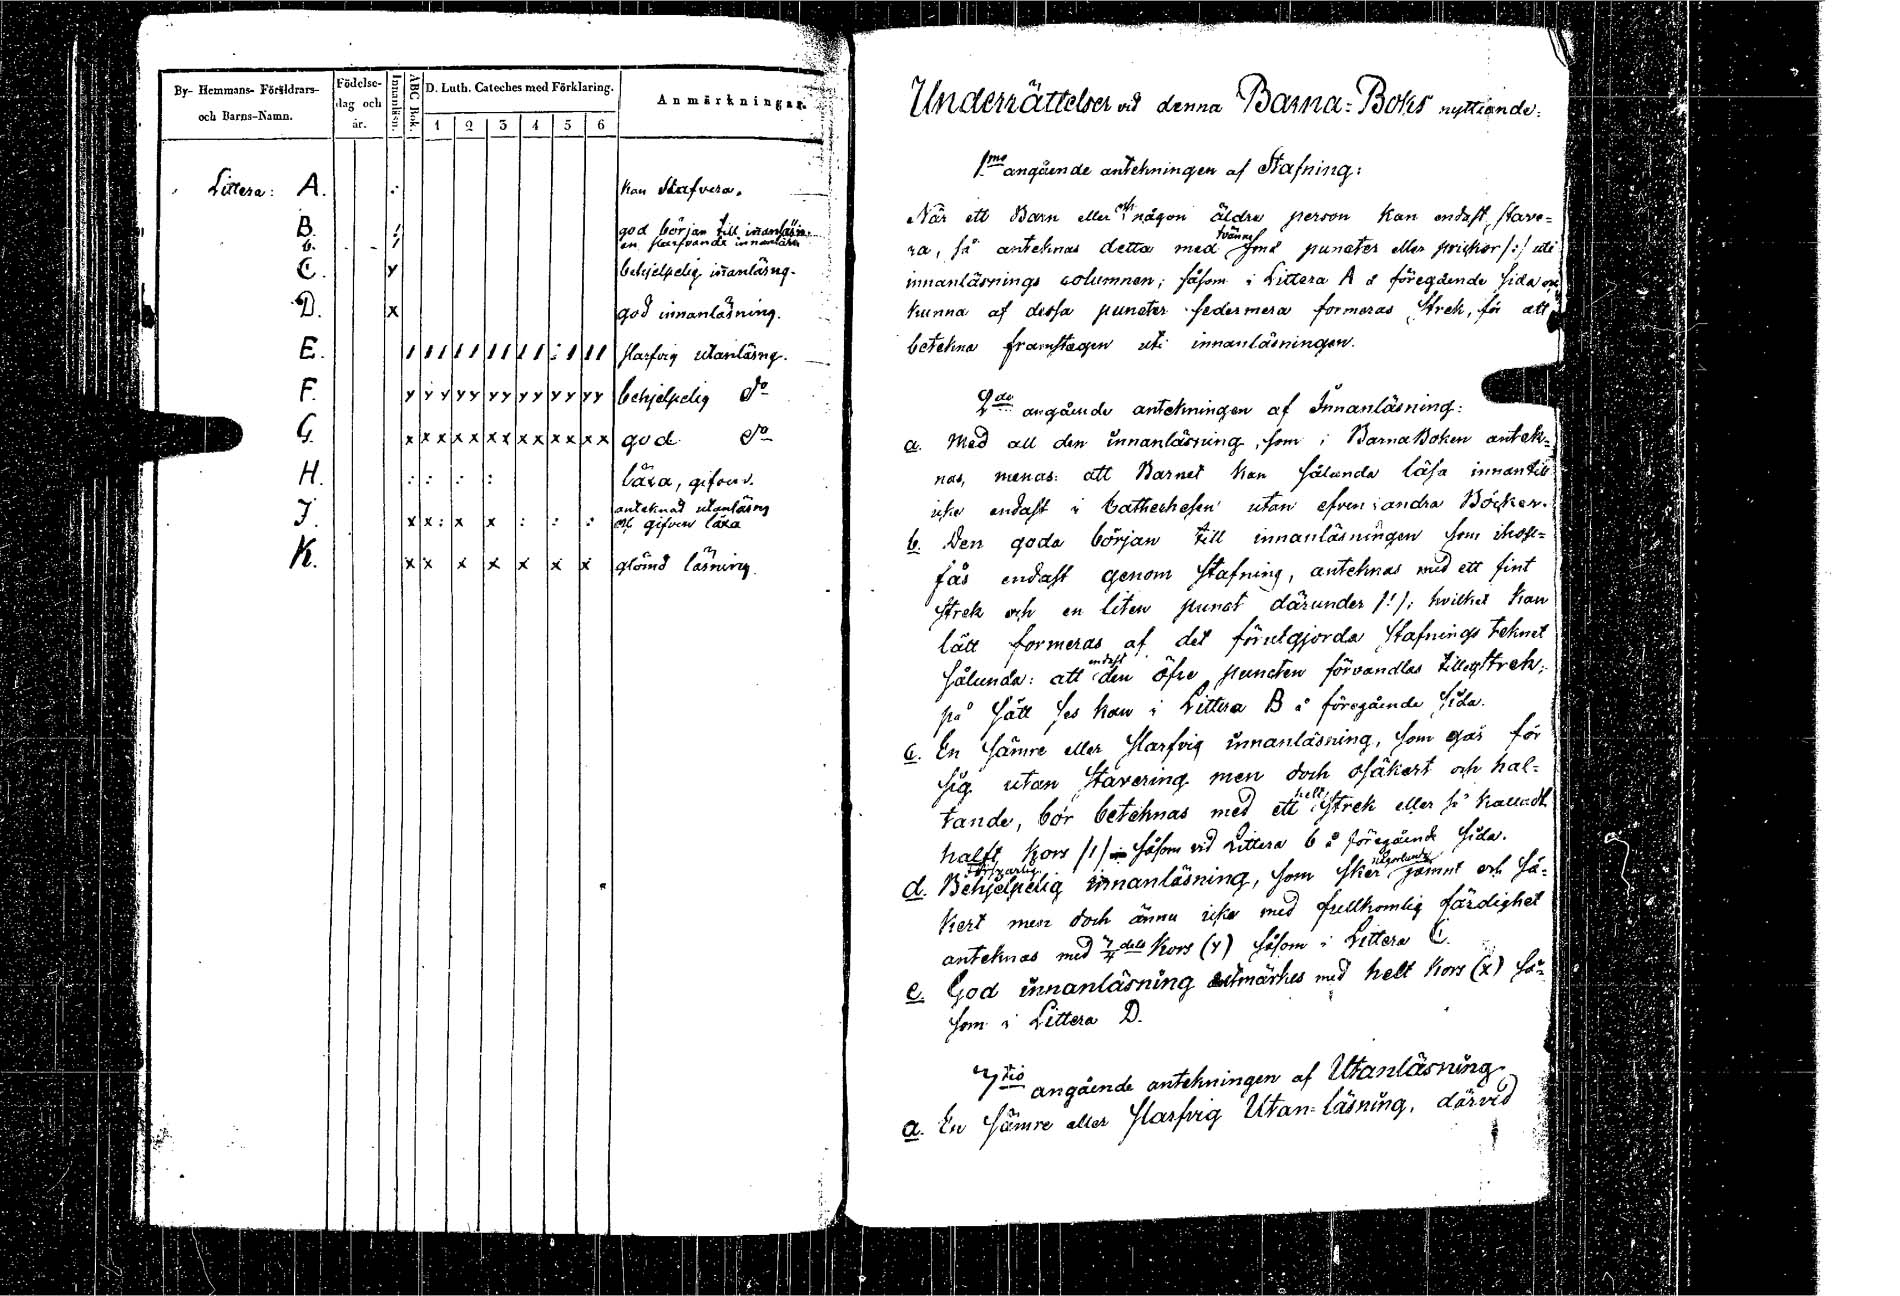 By- Hemmans- Föräldrars-
och Barns-Namn.
Födelse-
dag och
år.
Innanläsn.
ABC Bok.
D. Luth. Cateches med Förklaring.
1 2 3 4 5 6
Anmärkningar.
Littera: A. : kan Stafvera.
B. god början till innanläsn.
b. en slarfvande innanläsn
C. y behjelpelig inanläsng.
D. x god innanläsning.
E. / / / / / / / / / : / / / slarfvig utanläsng.
F. y y y y y y y y y y y y y behjelpelig do
G. x x x x x x x x x x x x x god do
H. : : : : läxa, gifven.
J. x x : x x : : : antecknad utanläsng
och gifven läxa
K. x x x x x x x glömd läsning.
Underrättelser vid denna Barna-Boks nyttjande:
1mo angående antekningen af Stafning:
När ett Barn eller ock någon äldre person kan endast stave-
ra, så anteknas detta med tvänne små puncter eller prickar /:/ uti
innanläsnings columnen; såsom i Littera A å föregående sida
kunna af dessa puncter sedermera formeras strek, för att
betekna framstegen uti innanläsningen.
2do angående antekningen af Innanläsning:
a. Med all den innanläsning, som i BarnaBoken antek-
nas, menas: att Barnet kan sålunda läsa innantill
icke endast i Cathechesen utan efven i andra Böcker.
b. Den goda början till innanläsningen som
fås endast genom stafning, anteknas med ett fint
strek och en liten punct därunder /!/; hvilket kan
lätt formeras af det förutgjorda Stafnings teknet
sålunda: att endast den öfre puncten förvandlas till strek;
på sätt ses kan i Littera B å föregående sida.
c. En sämre eller slarfvig innanläsning, som går för
sig utan stavering men doch osäkert och hal-
tande, bör beteknas med ett helt strek eller så kalladt
halft kors /1/ såsom vid Littera b å föregående sida.
d. Behjelpelig innanläsning, som sker någorlunda jämnt och sä-
kert men doch ännu icke med fullkomlig färdighet
anteknas med 3/4 dels kors (y) såsom i Littera C.
e. God innanläsning utmärkes med helt kors (x) så-
som i Littera D.
3tio angående antekningen af Utanläsning
a. En sämre eller slarfvig Utan-läsning, därvid